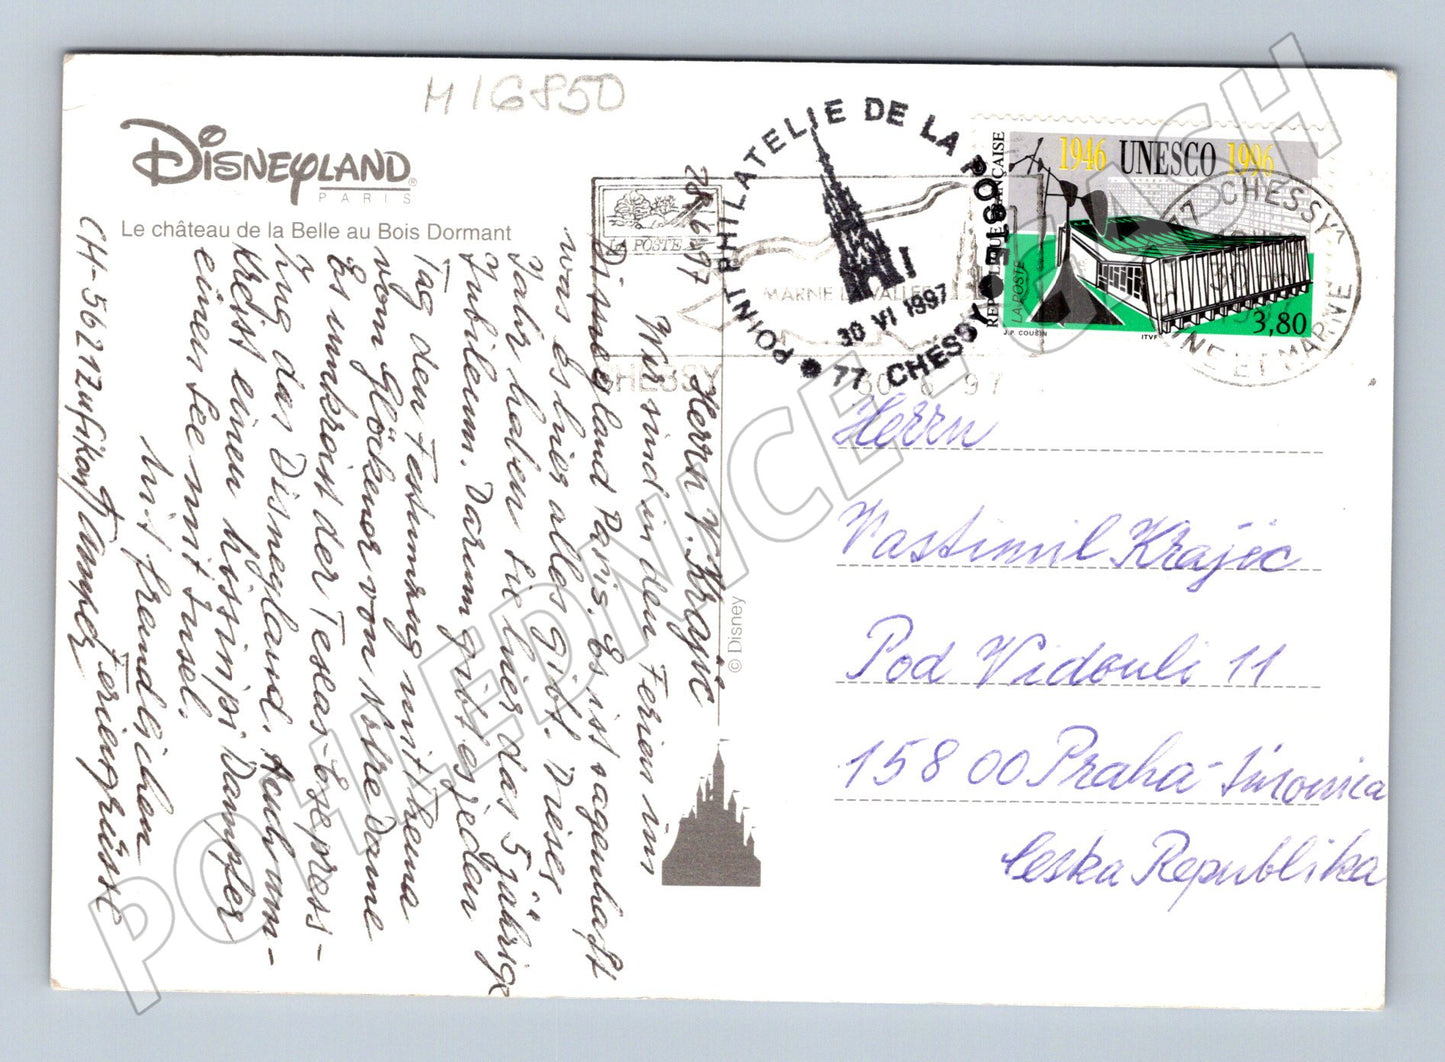 H 16850
DISNEYLAND
PARIS
Le château de la Belle au Bois Dormant
28.6.97
Herrn V. Krajic
Wir sind in den Ferien im
Disneyland Paris. Es ist sagenhaft
was es hier alles gibt. Dieses
Jahr haben sie hier das 5 jährige
Jubileum. Darum gibt es jeden
Tag den Festumzug mit Thema
vom Glöckner von Notre Dame
Es umkreist der Texas-Express-
Zug das Disneyland. Auch um-
kreist einen Missisipi Dampfer
einen See mit Insel.
Mit freundlichen
Feriengrüsse
CH-5621 Zufikon
© Disney
POINT PHILATELIE DE LA POSTE
30 VI 1997
77 CHESSY
LA POSTE
MARNE LA VALLEE
CHESSY
30 6 97
1946 UNESCO 1996
REPUBLIQUE FRANÇAISE
LA POSTE
3,80
J.P. COUSIN
ITVF
77 CHESSY
SEINE ET MARNE
Herrn
Vastimil Krajic
Pod Vidouli 11
158 00 Praha-Jinonica
Česka Republika
POHLEDNICE.CASH